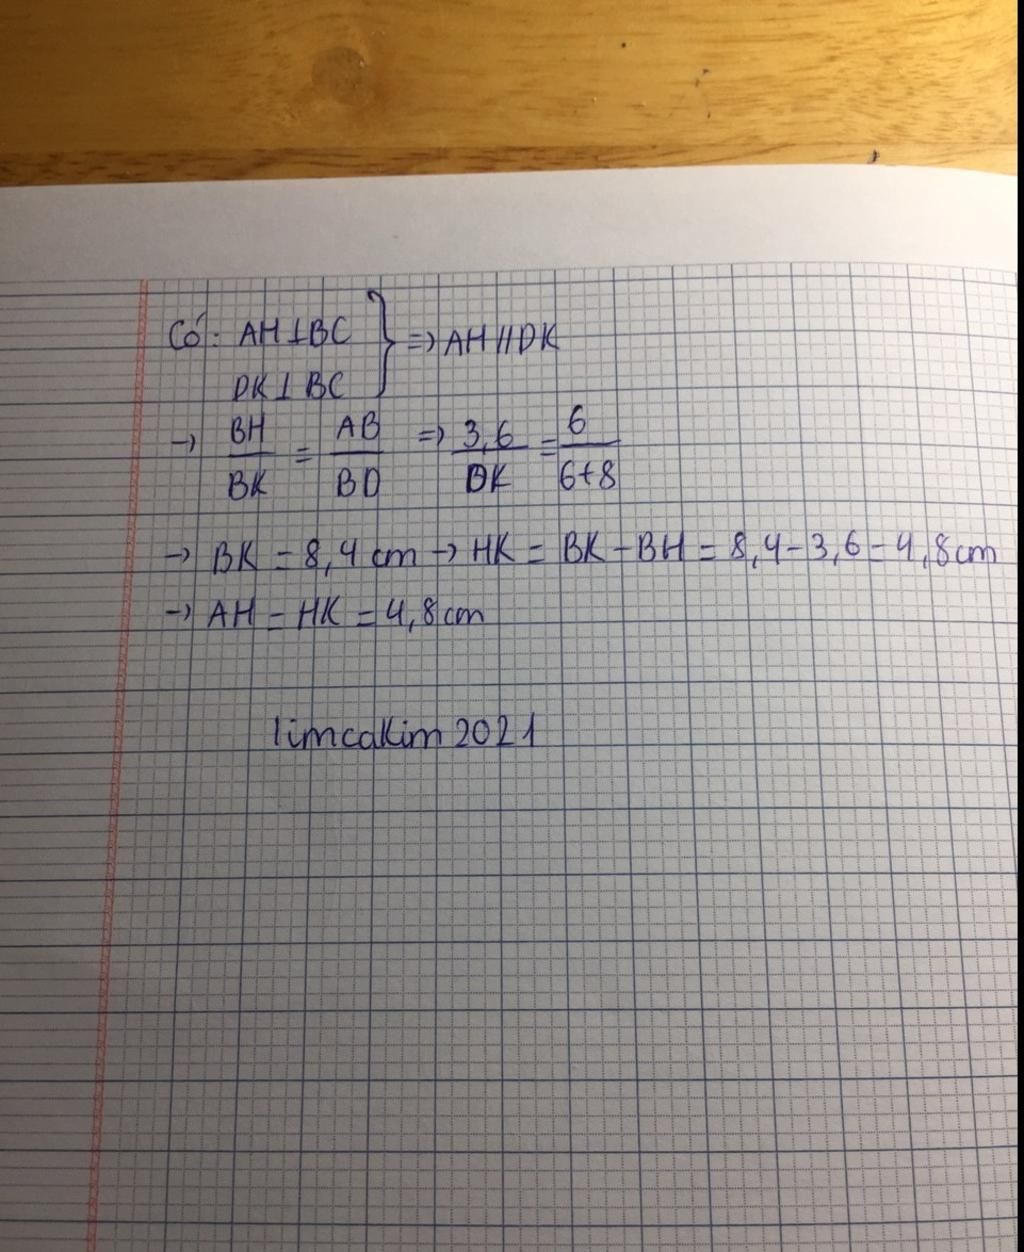 Có: AH⊥BC } => AH // DK
DK⊥BC
→ BH/BK = AB/BD => 3,6/BK = 6/6+8
→ BK = 8,4 cm → HK = BK - BH = 8,4 - 3,6 = 4,8 cm
→ AH = HK = 4,8 cm
limcakim 2021